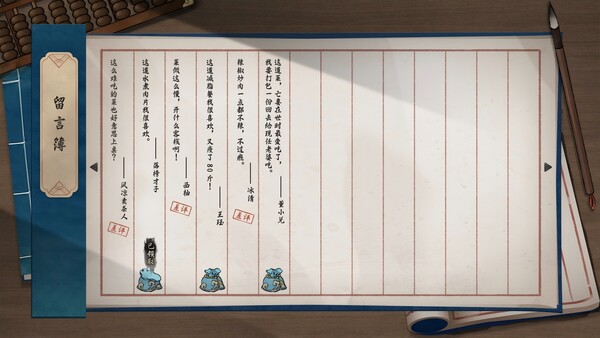 留言簿
这道菜，亡妻在世时最爱吃了，
我要打包一份回去给现任老婆吃。
——董小兄
辣椒炒肉一点都不辣，不过瘾。
——冰清
差评
这道减脂餐我很喜欢，又瘦了80斤！
——王珏
菜做这么慢，开什么客栈啊！
——西柚
差评
这道水煮肉片我很喜欢。
——落榜才子
已领取
这么难吃的菜也好意思上桌？
——风凉煮茶人
差评